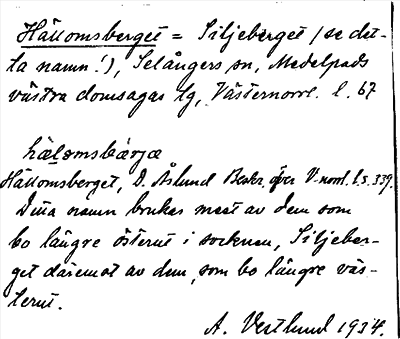 Hällomsberget = Siljeberget (se det-
ta namn!), Selångers sn, Medelpads
västra domsagas tg, Västernorrl. l. 67
hæl̥omsbærjæ
Hällomsberget, D. Åslund Beskr. över V-norrl. l. s. 339.
Detta namn brukas mest av dem som
bo längre österut i socknen, Siljeber-
get däremot av dem, som bo längre väs-
terut.
A. Vestlund 1934.